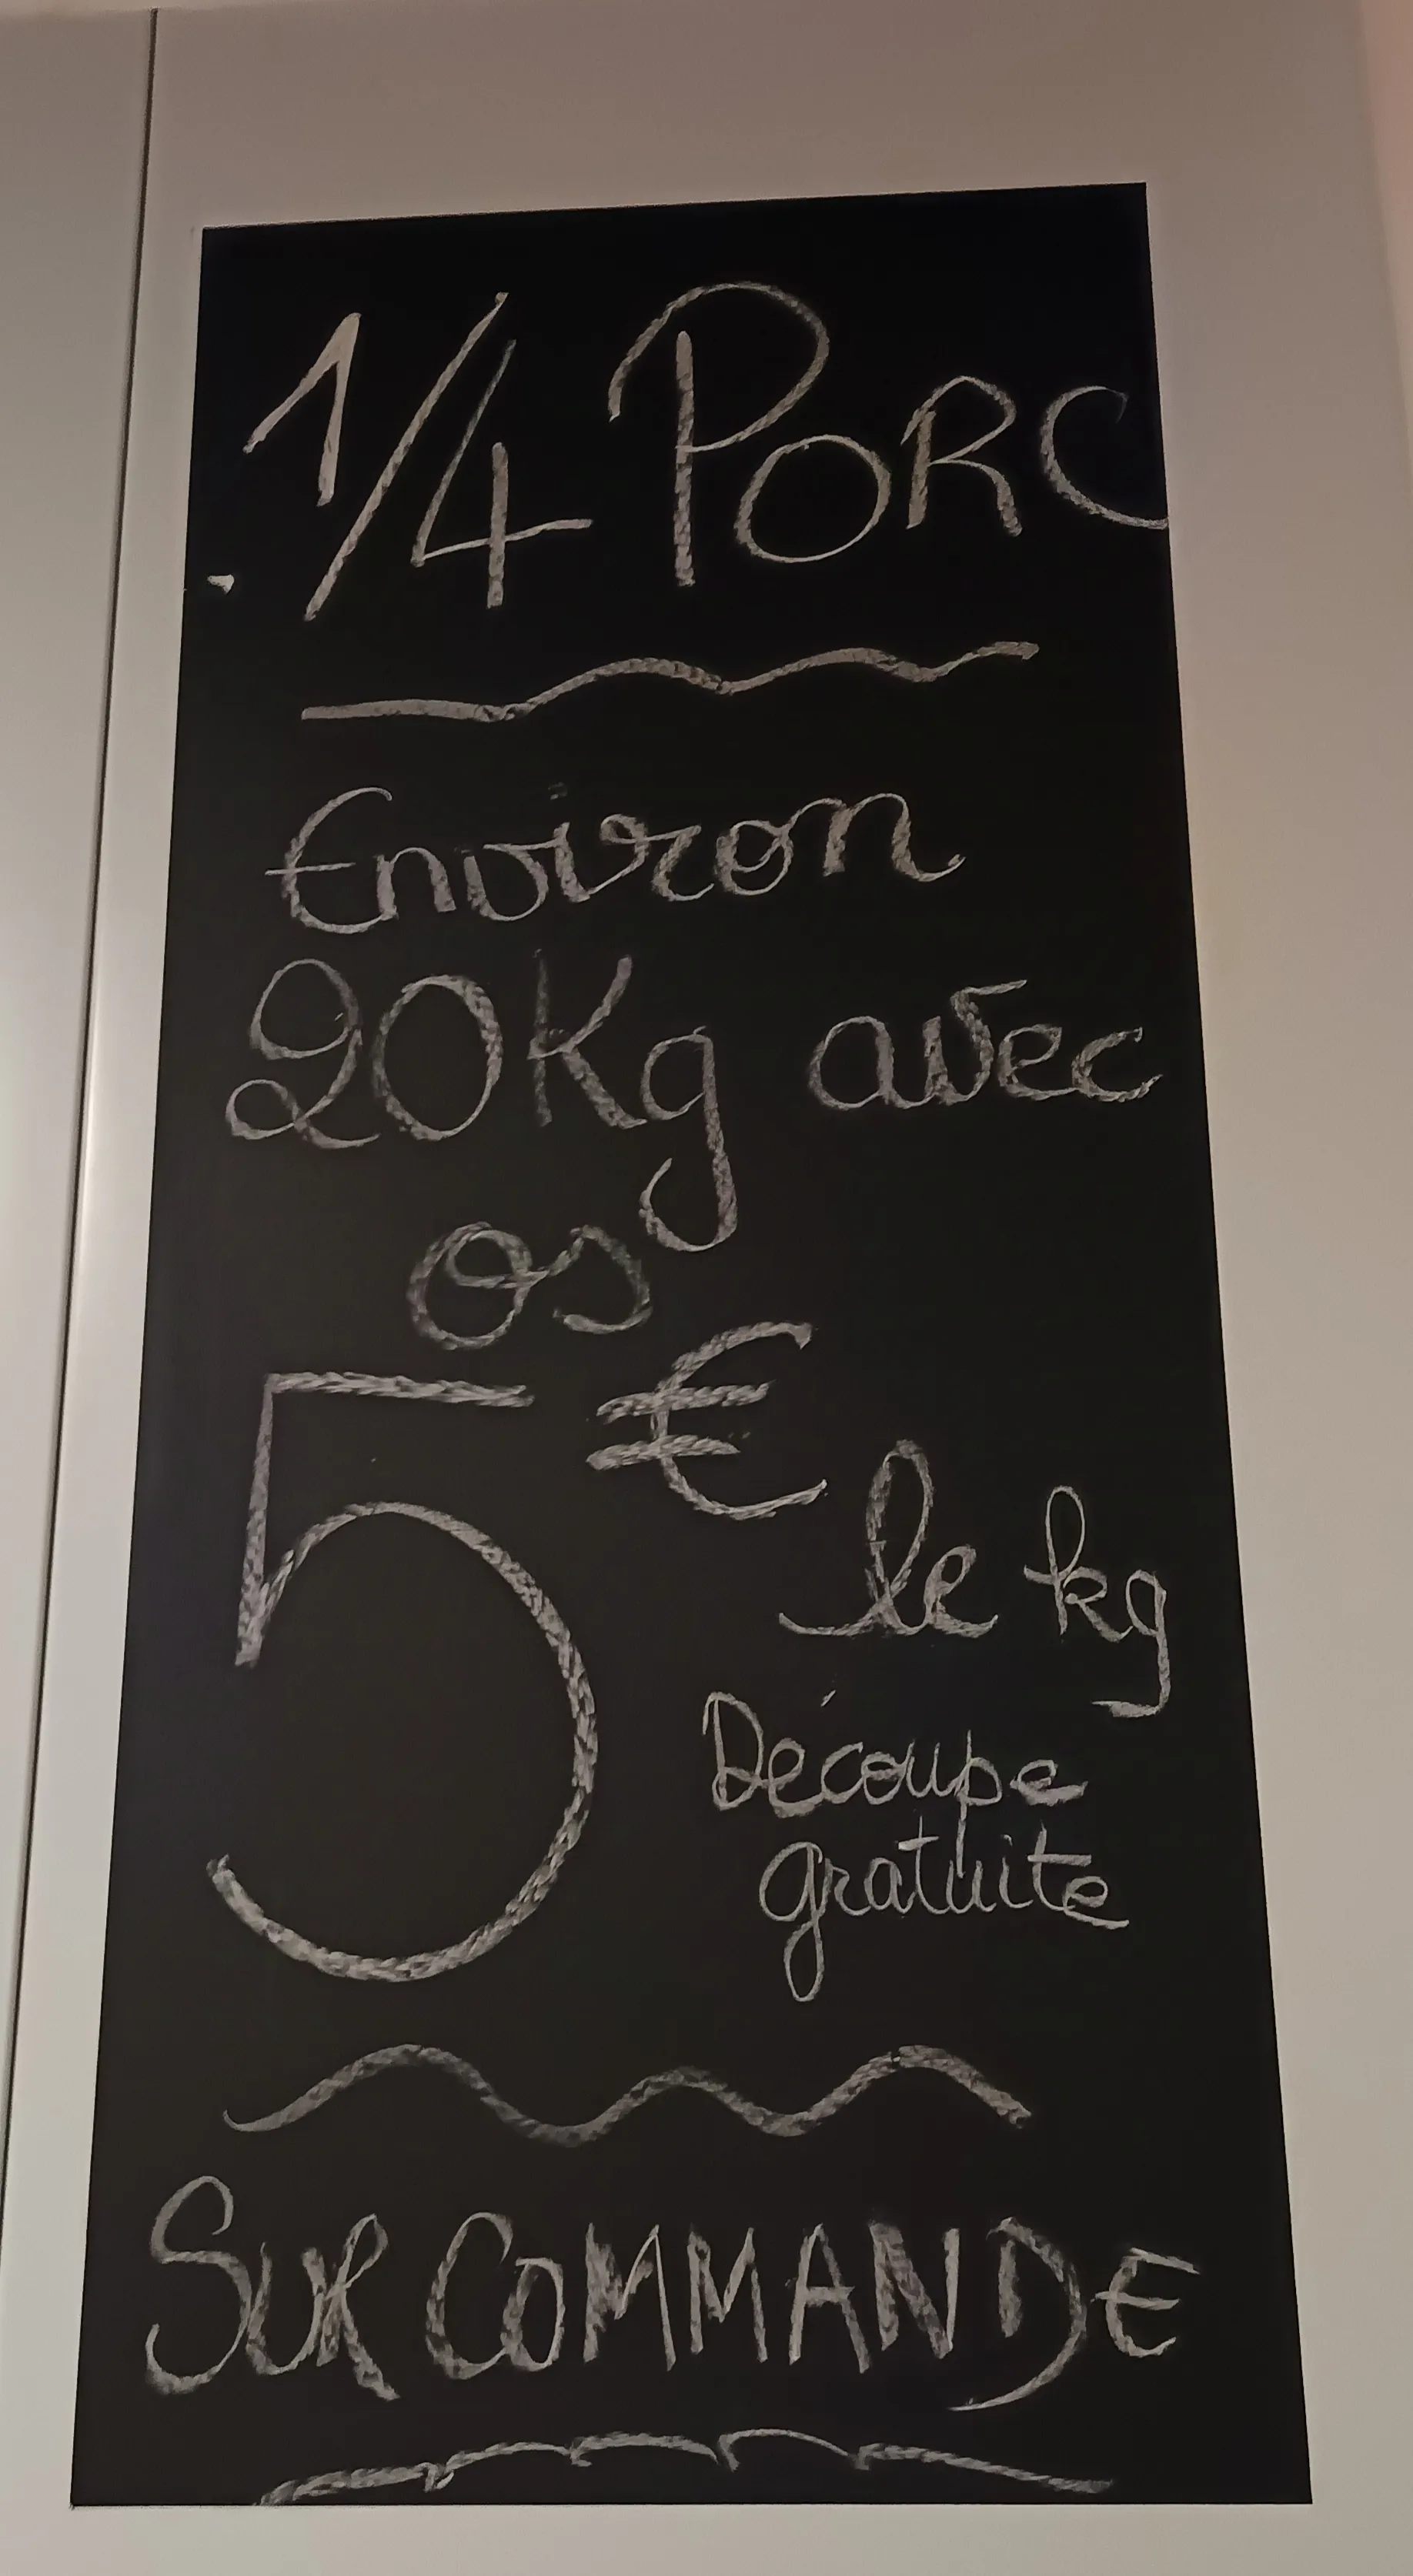 1/4 PORC
Environ
20Kg avec
os
5€ le kg
Découpe
gratuite
SUR COMMANDE